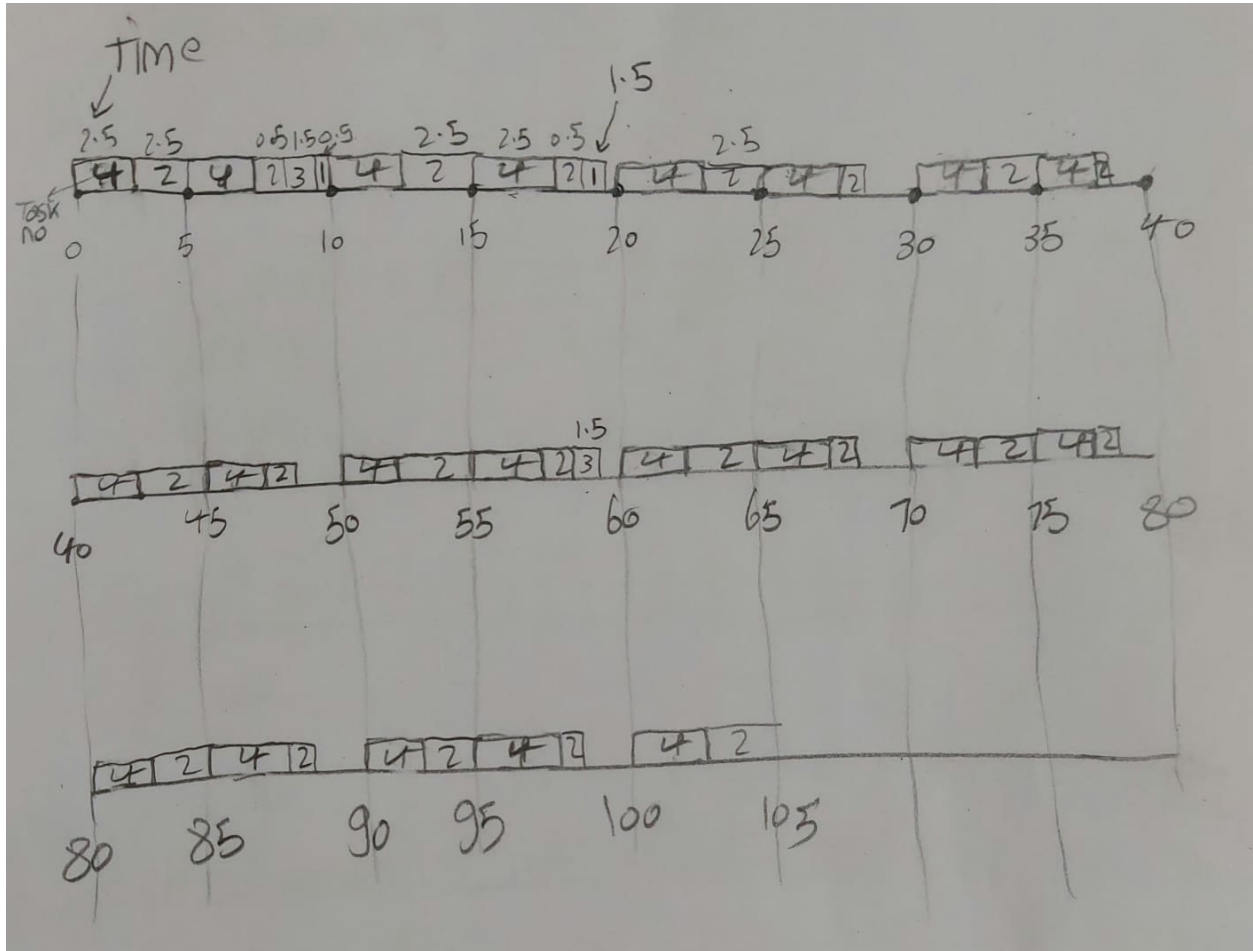 Time
1.5
2.5 2.5 0.5 1.5 0.5 2.5 2.5 0.5 2.5
4 2 4 2 3 1 4 2 4 2 1 4 2 4 2 4 2 4 2
Task
no
0 5 10 15 20 25 30 35 40
1.5
4 2 4 2 4 2 4 2 3 4 2 4 2 4 2 4 2
40 45 50 55 60 65 70 75 80
4 2 4 2 4 2 4 2 4 2
80 85 90 95 100 105